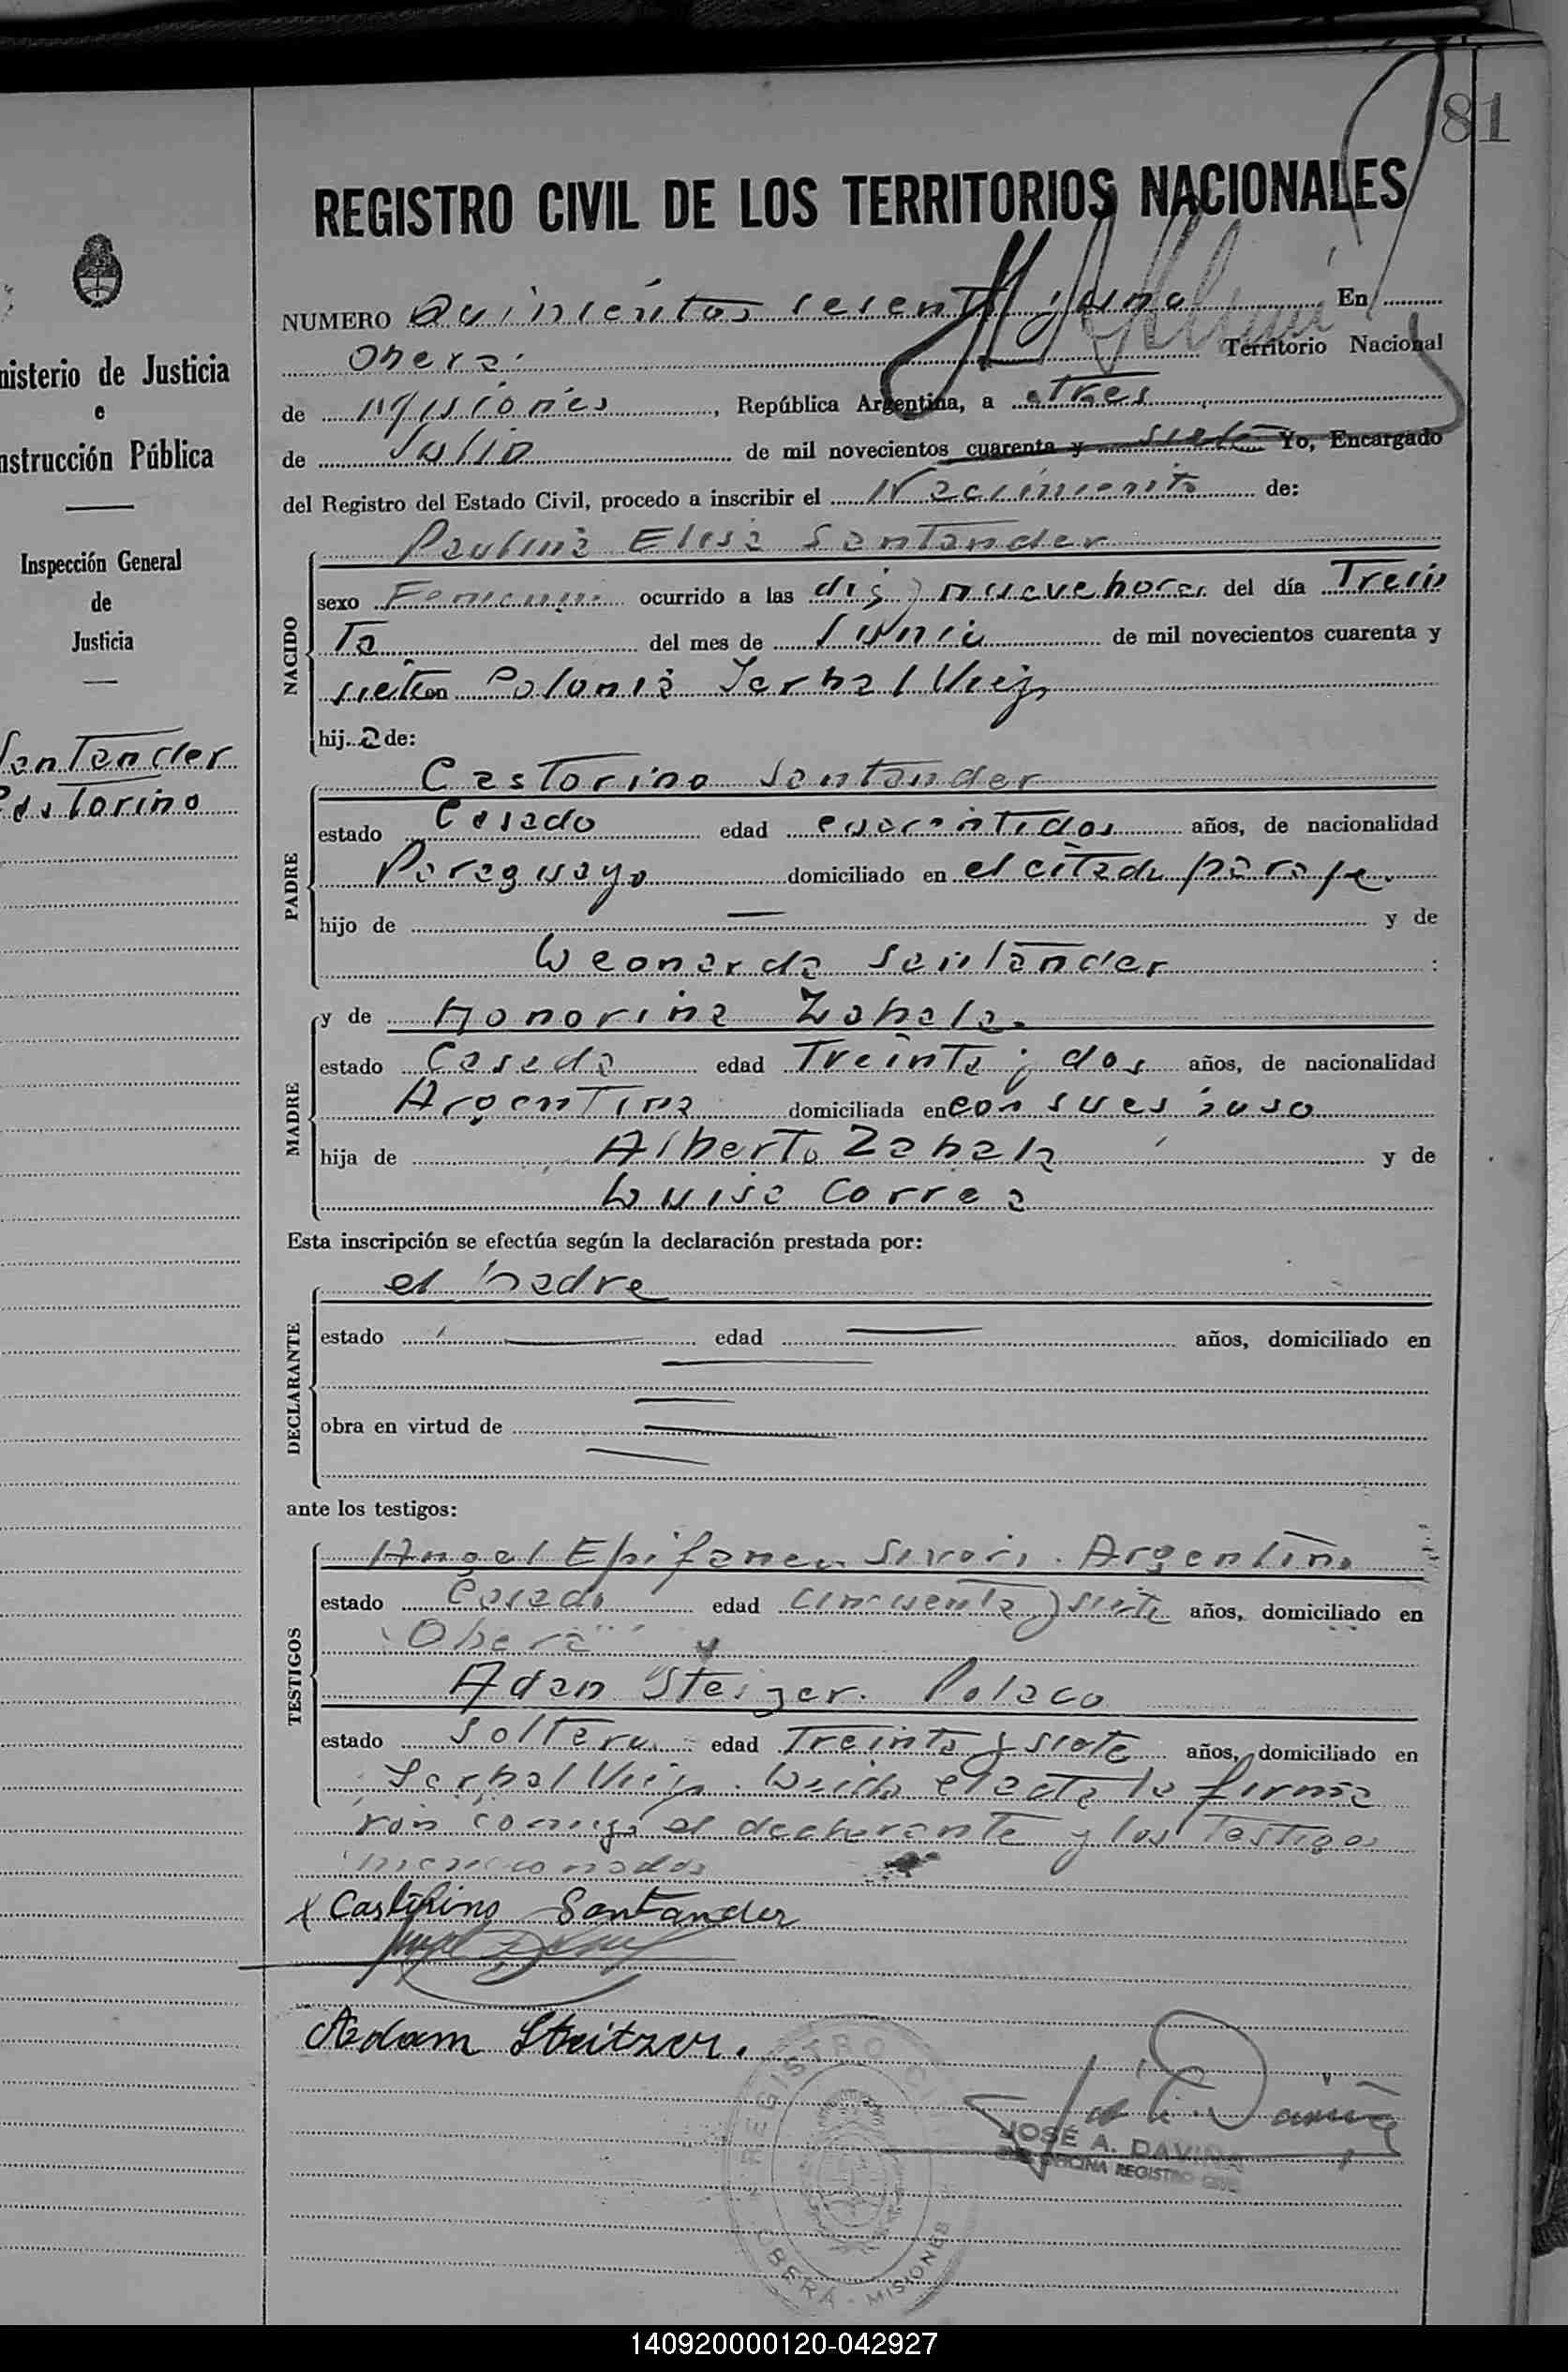 81
REGISTRO CIVIL DE LOS TERRITORIOS NACIONALES
NUMERO Quinientos sesenta y uno En
Obera. Territorio Nacional
de Misiones, República Argentina, a tres
de Julio de mil novecientos cuarenta y siete Yo, Encargado
del Registro del Estado Civil, procedo a inscribir el Nacimiento de:
NACIDO
Paulina Elisa Santander
sexo Femenino ocurrido a las diez y nueve horas del día Trein
Ta del mes de Junio de mil novecientos cuarenta y
siete en Colonia Yerbal Viejo
hija de:
PADRE
Castorino Santander
estado Casado edad cuarentidos años, de nacionalidad
Paraguayo domiciliado en el citado paraje.
hijo de — y de
Leonarda Santander
MADRE
y de Honorina Zabala.
estado Casada edad Treinta y dos años, de nacionalidad
Argentina domiciliada en con su esposo
hija de Alberto Zabala y de
Luisa Correa
Esta inscripción se efectúa según la declaración prestada por:
DECLARANTE
el padre
estado — edad — años, domiciliado en
obra en virtud de
ante los testigos:
TESTIGOS
Angel Epifaneo Sivori. Argentino
estado Casado edad cincuenta y siete años, domiciliado en
Obera y
Adan Steizer. Polaco
estado Soltero edad Treinta y siete años, domiciliado en
Yerbal Viejo. Leida el acta la firma
ron conmigo el declarante y los Testigos
mencionados
x Castorino Santander
Adam Streitzer.
JOSÉ A. DAVIÑA
OFICINA REGISTRO CIVIL
REGISTRO CIVIL
OBERÁ - MISIONES
nisterio de Justicia
e
nstrucción Pública
Inspección General
de
Justicia
Santander
Castorino
140920000120-042927